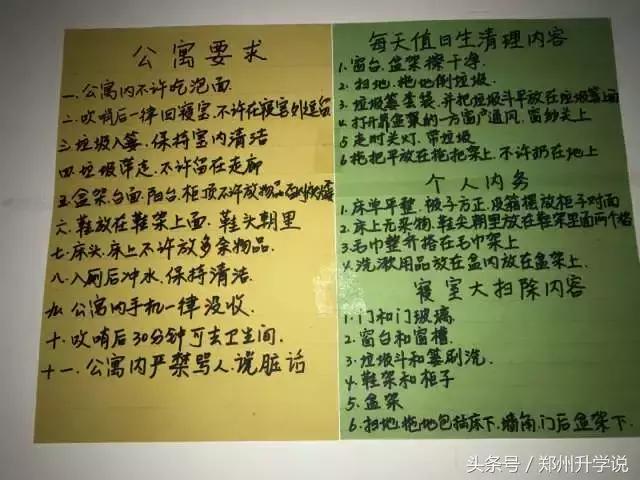 公寓要求
一、公寓内不许吃泡面.
二.吹哨后一律回寝室,不许在寝室外逗留
三.垃圾入篓,保持室内清洁
四.垃圾带走,不许留在走廊
五.盆架,台面,阳台,柜顶不许放物品
六、鞋放在鞋架上面,鞋头朝里
七.床头,床上不许放多余物品.
八.入厕后冲水,保持清洁.
九.公寓内手机一律没收.
十.吹哨后30分钟可去卫生间.
十一.公寓内严禁骂人.说脏话
每天值日生清理内容
1.窗台,盆架擦干净.
2.扫地,拖地倒垃圾.
3.垃圾篓套袋,并把垃圾斗平放在垃圾篓上面
4.打开靠盆架的一方窗户通风,窗纱关上
5.走时关灯,带垃圾
6.拖把平放在拖把架上,不许扔在地上
个人内务
1.床单平整,被子方正,皮箱摆放柜子对面
2.床上无杂物,鞋尖朝里放在鞋架里面两个格
3.毛巾整齐搭在毛巾架上
4.洗漱用品放在盆内放在盆架上.
寝室大扫除内容
1.门和门玻璃.
2.窗台和窗槽.
3.垃圾斗和篓刷洗.
4.鞋架和柜子
5.盆架
6.扫地,拖地包括床下,墙角,门后盆架下.
头条号/郑州升学说